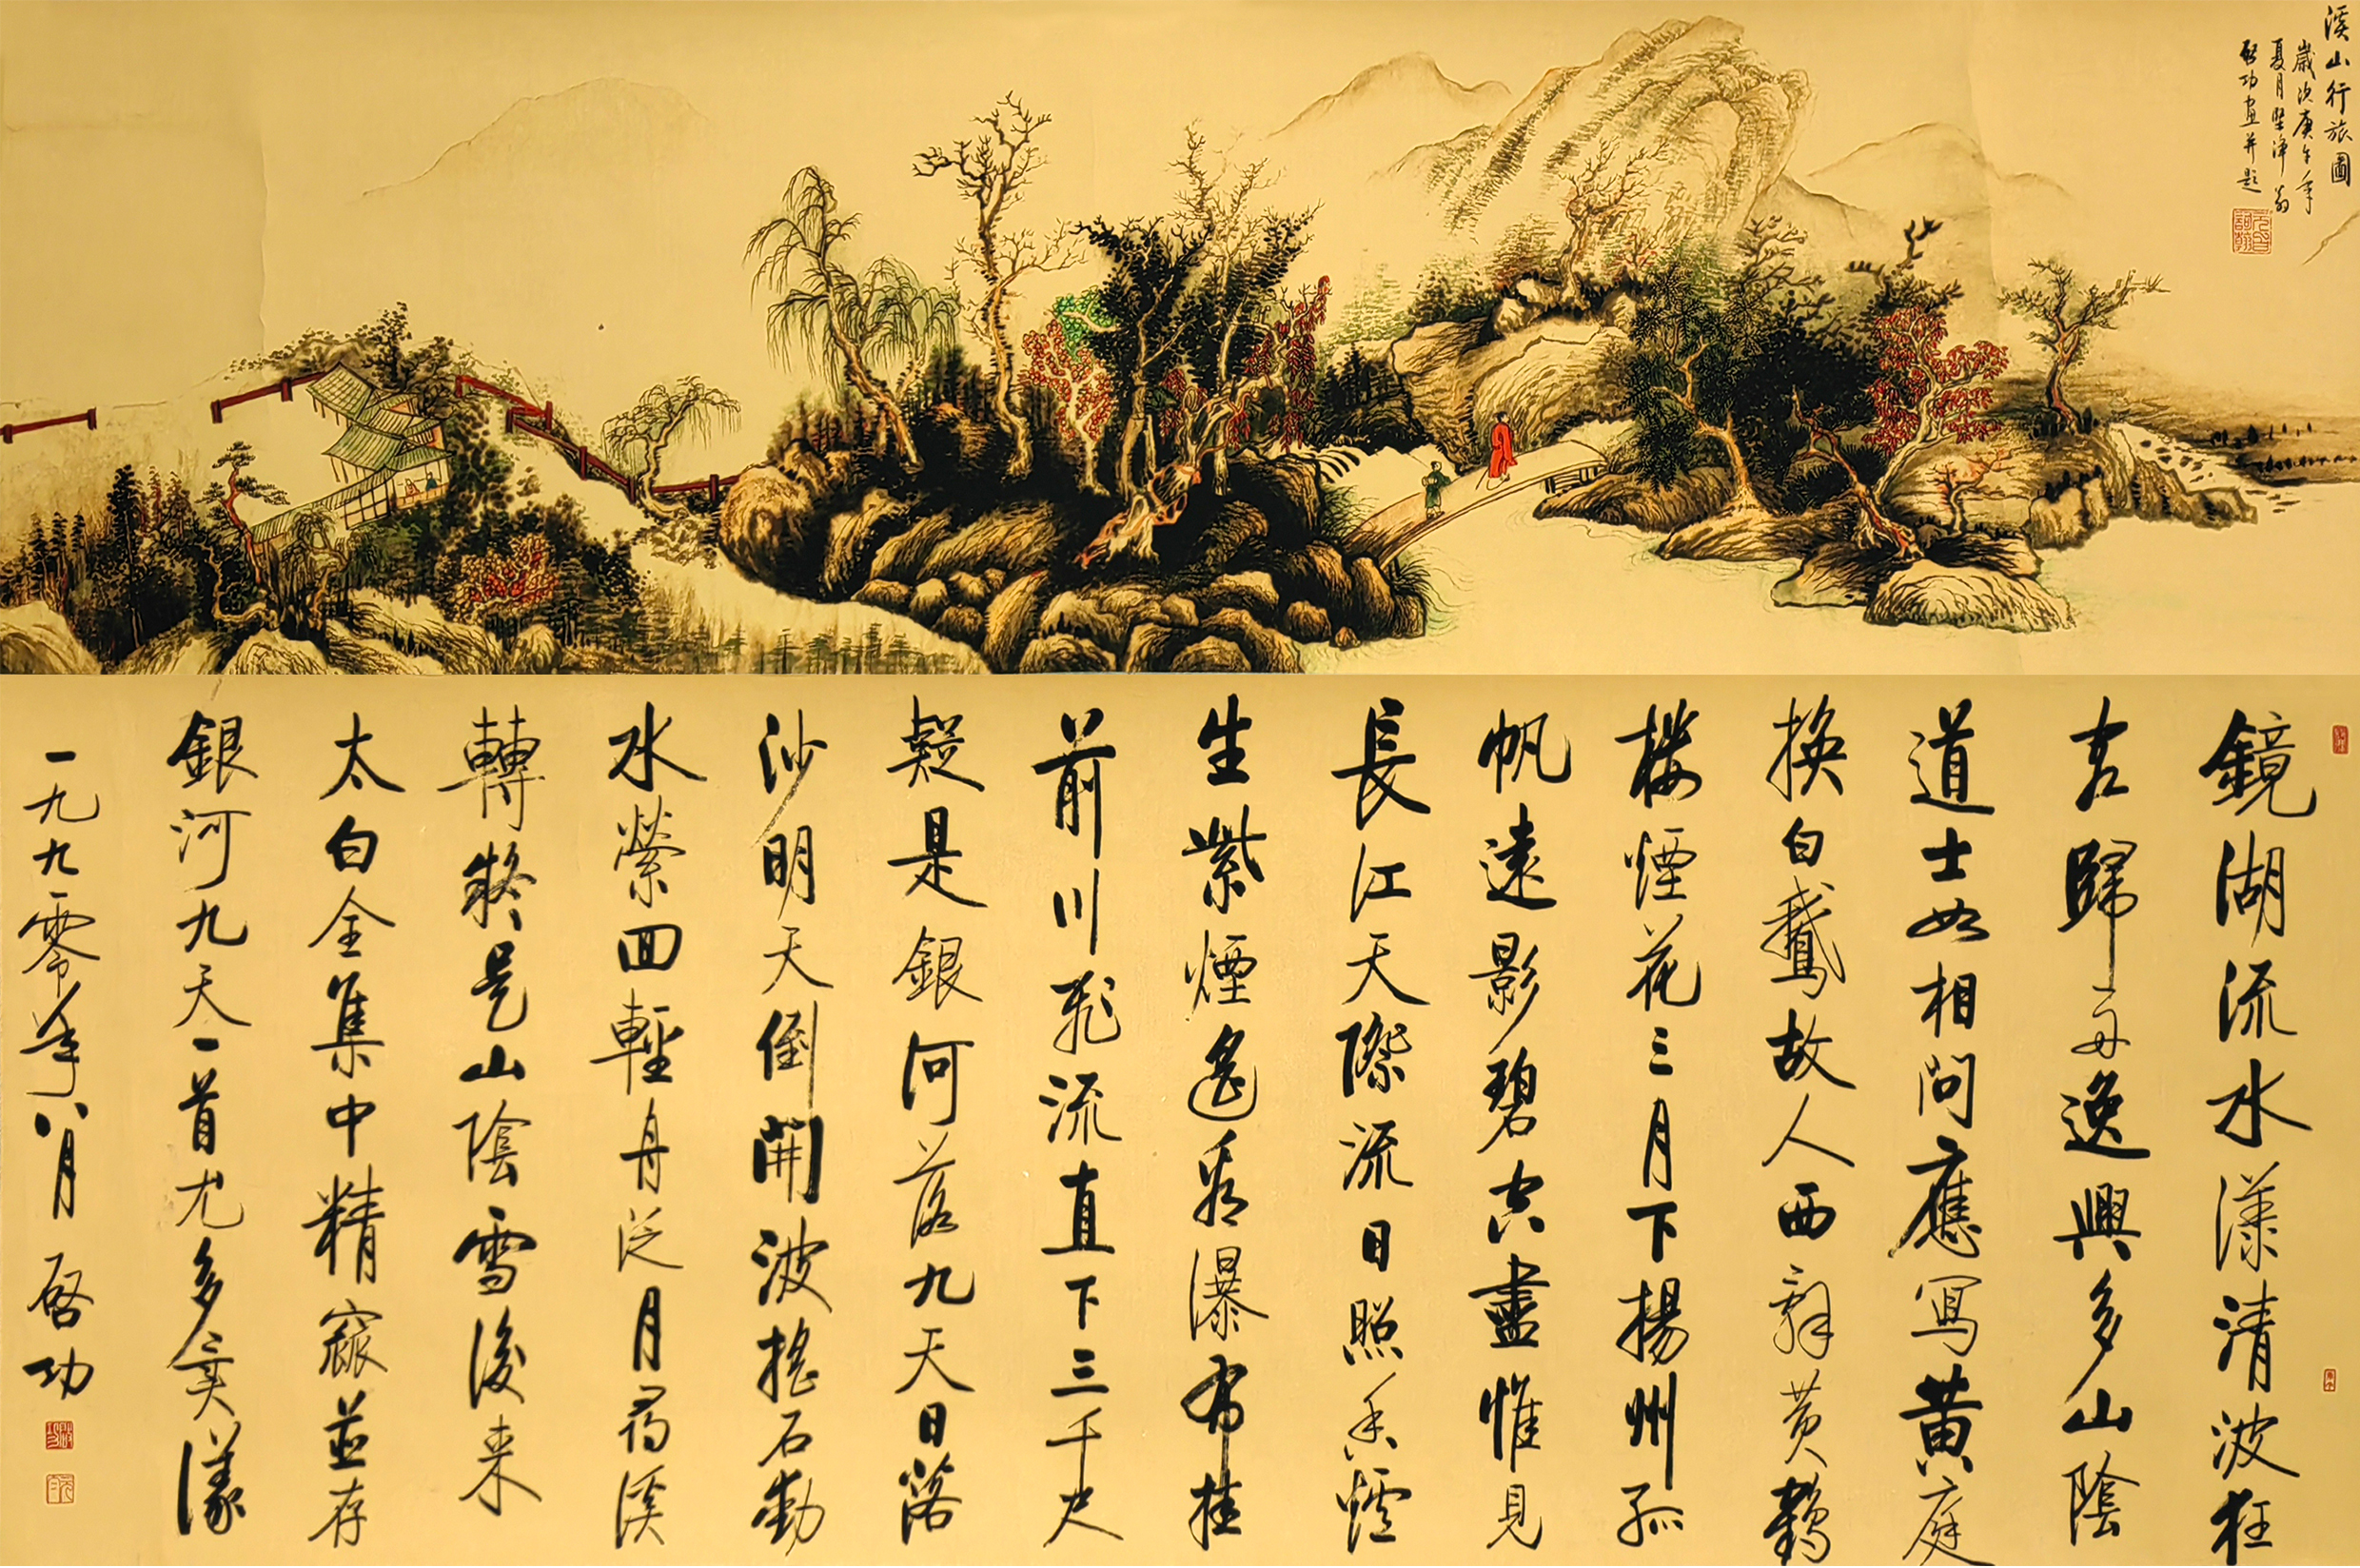 溪山行旅圖
歲次庚午年
夏月堅淨翁
啓功畫并題
鏡湖流水漾清波狂
客歸舟逸興多山陰
道士如相問應寫黃庭
換白鵝故人西辭黃鶴
樓煙花三月下揚州孤
帆遠影碧空盡惟見
長江天際流日照香爐
生紫煙遙看瀑布挂
前川飛流直下三千尺
疑是銀河落九天日落
沙明天倒開波搖石動
水縈回輕舟泛月尋溪
轉疑是山陰雪後来
太白全集中精竄並存
銀河九天一首尤多
一九九零年八月 啓功